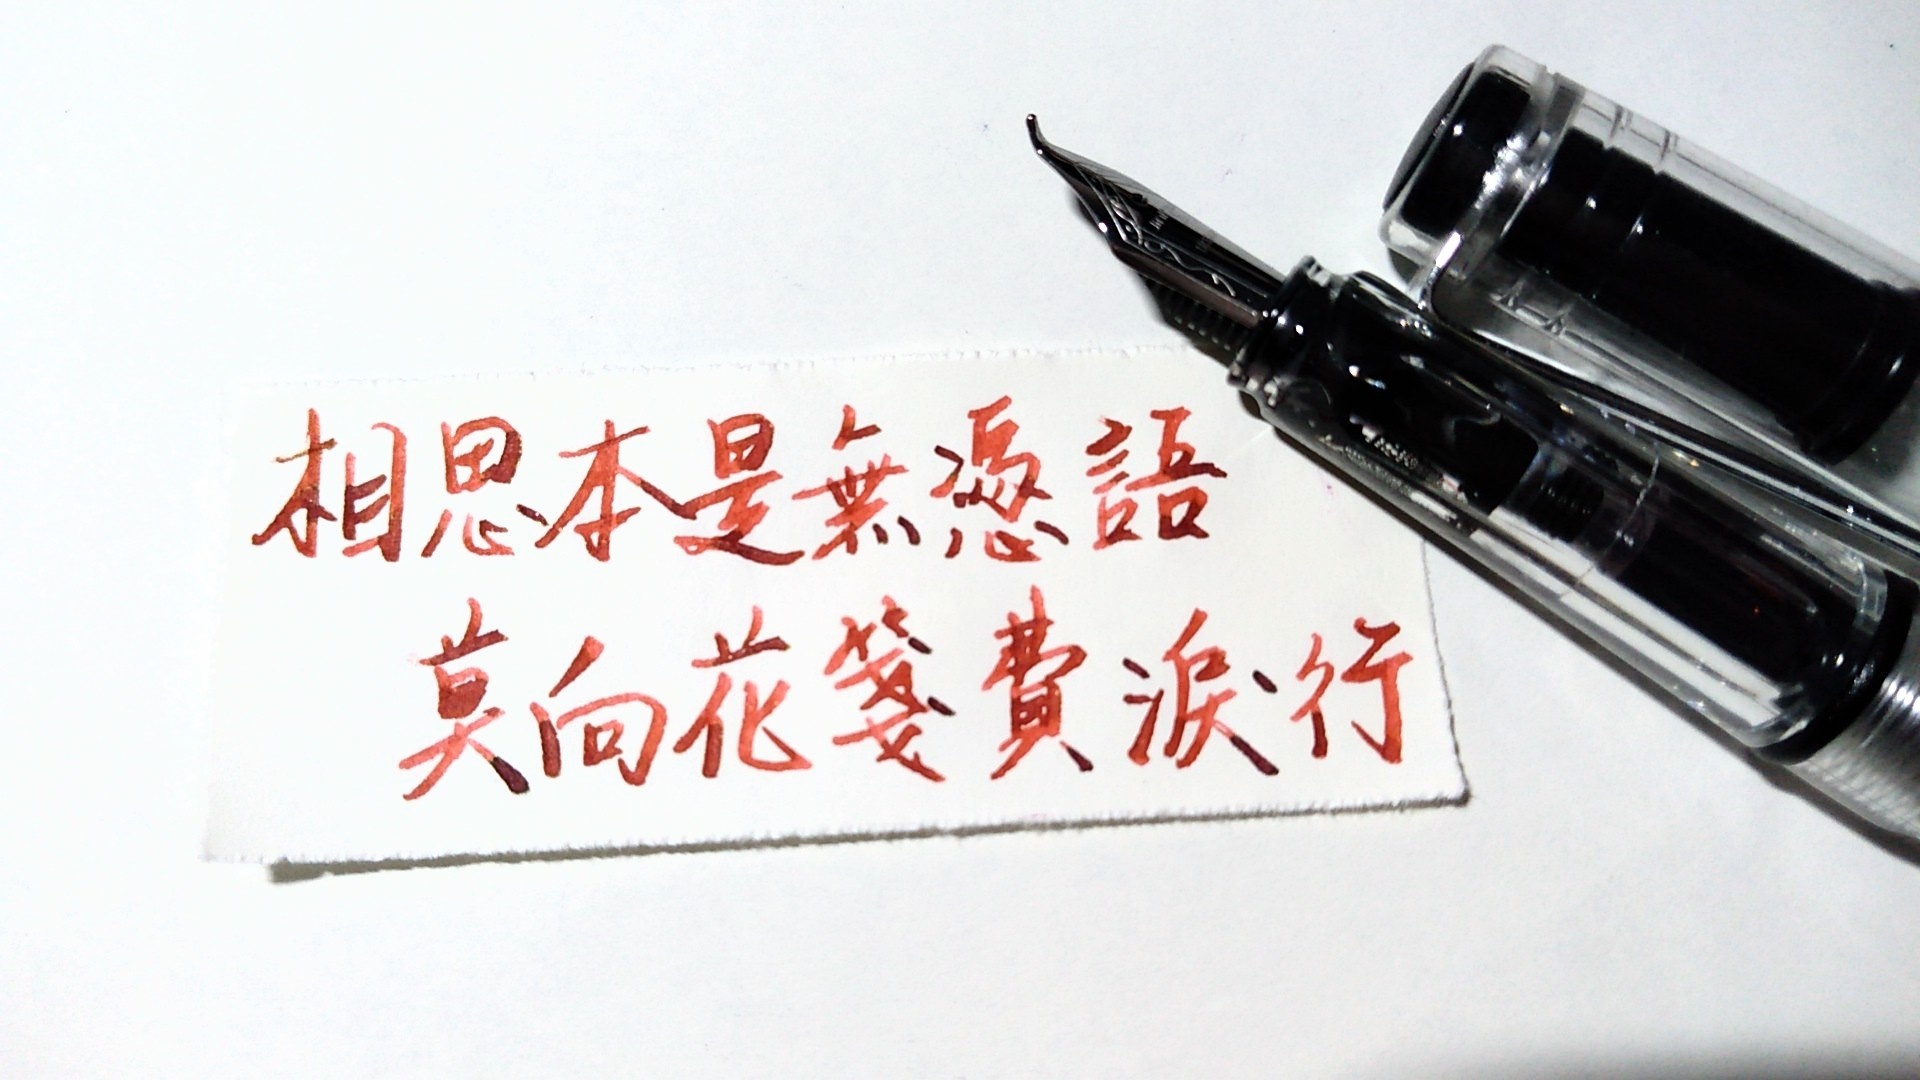 相思本是無憑語
莫向花箋費淚行